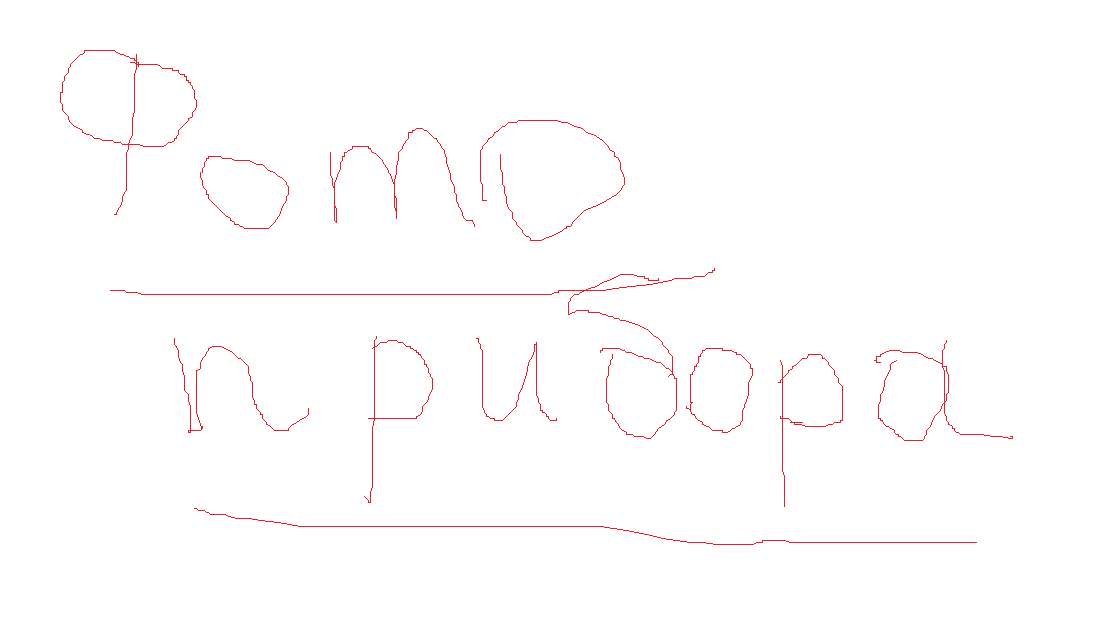 Фото
прибора